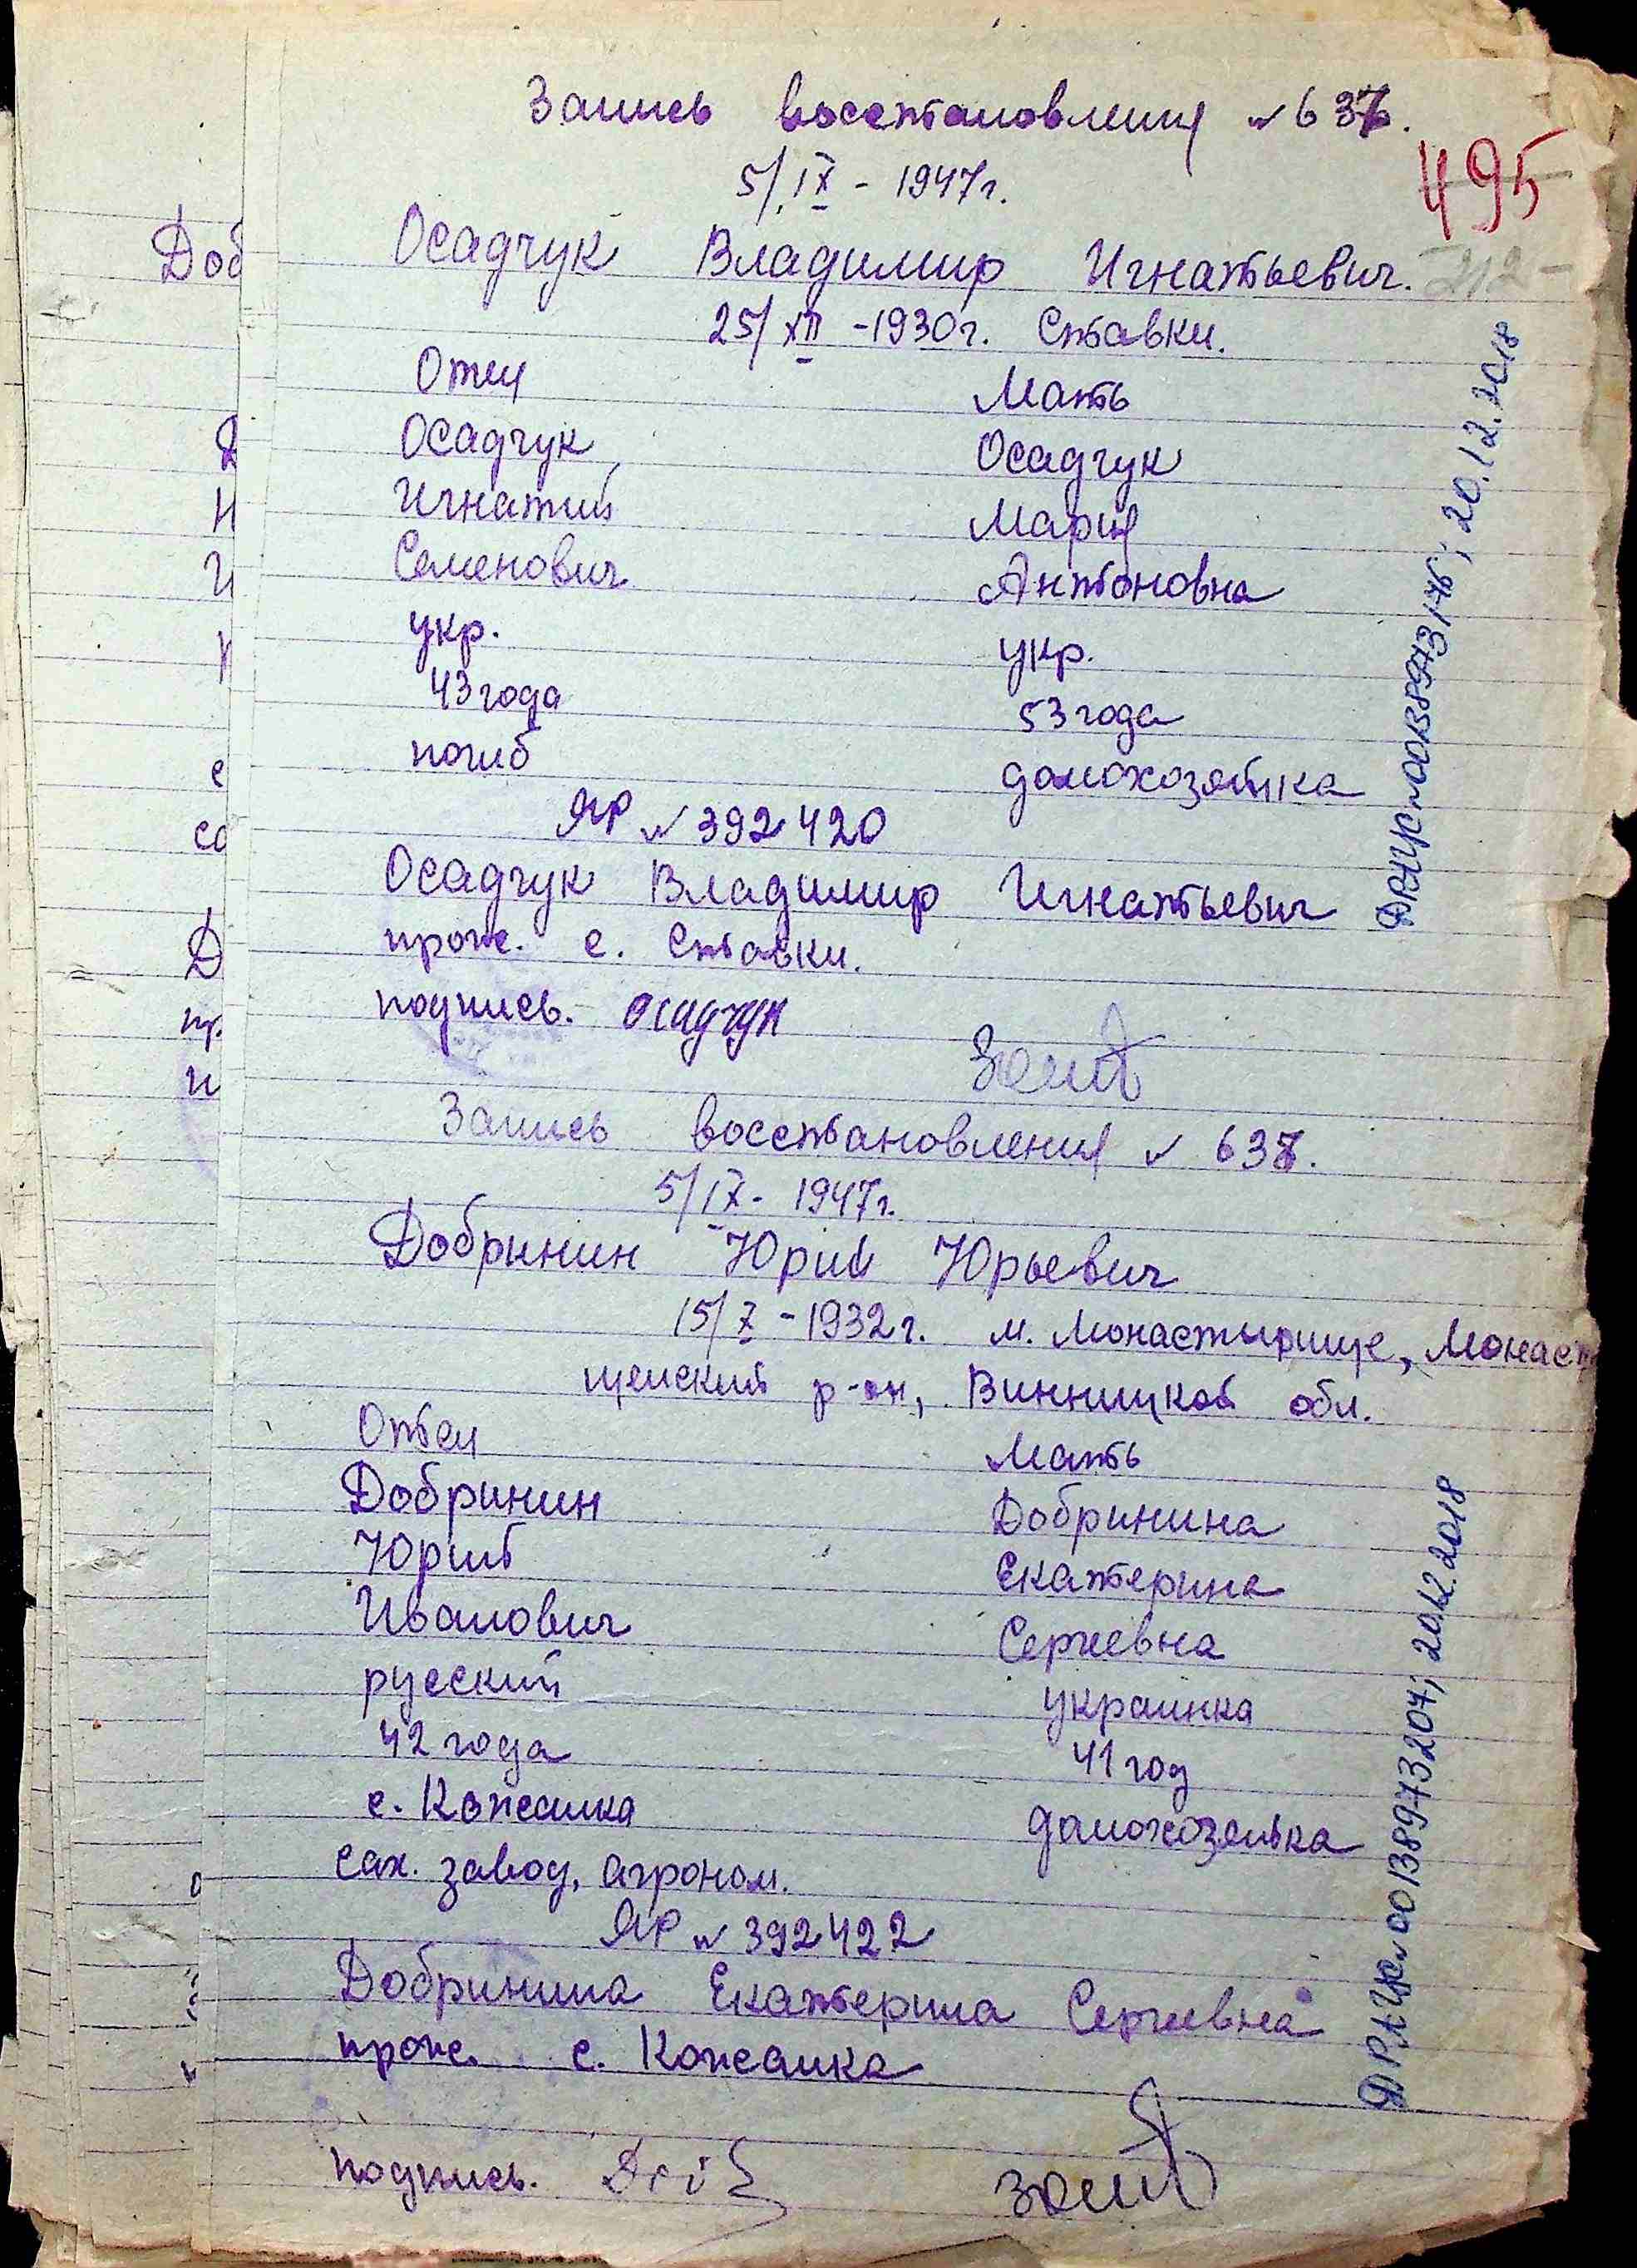 Запись восстановления № 637.
495
5/IX - 1947г.
Осадчук Владимир Игнатьевич.
25/XII - 1930г. Ставки.
Отец Мать
Осадчук Осадчук
Игнатий Мария
Семенович Антоновна
укр. укр.
43 года 53 года
погиб домохозяйка
ЯР № 392420
Осадчук Владимир Игнатьевич
прож. с. Ставки.
подпись. Осадчук
Запись восстановления № 638.
5/IX - 1947г.
Добринин Юрий Юрьевич
15/X - 1932г. м. Монастырище, Монасты
щенский р-он, Винницкой обл.
Отец Мать
Добринин Добринина
Юрий Екатерина
Иванович Сергеевна
русский украинка
42 года 41 год
с. Кожанка домохозяйка
сах. завод, агроном.
ЯР № 392422
Добринина Екатерина Сергеевна
прож. с. Кожанка
подпись.
ДРАЦС №00138973176; 20.12.2018
ДРАЦС №00138973207; 20.12.2018